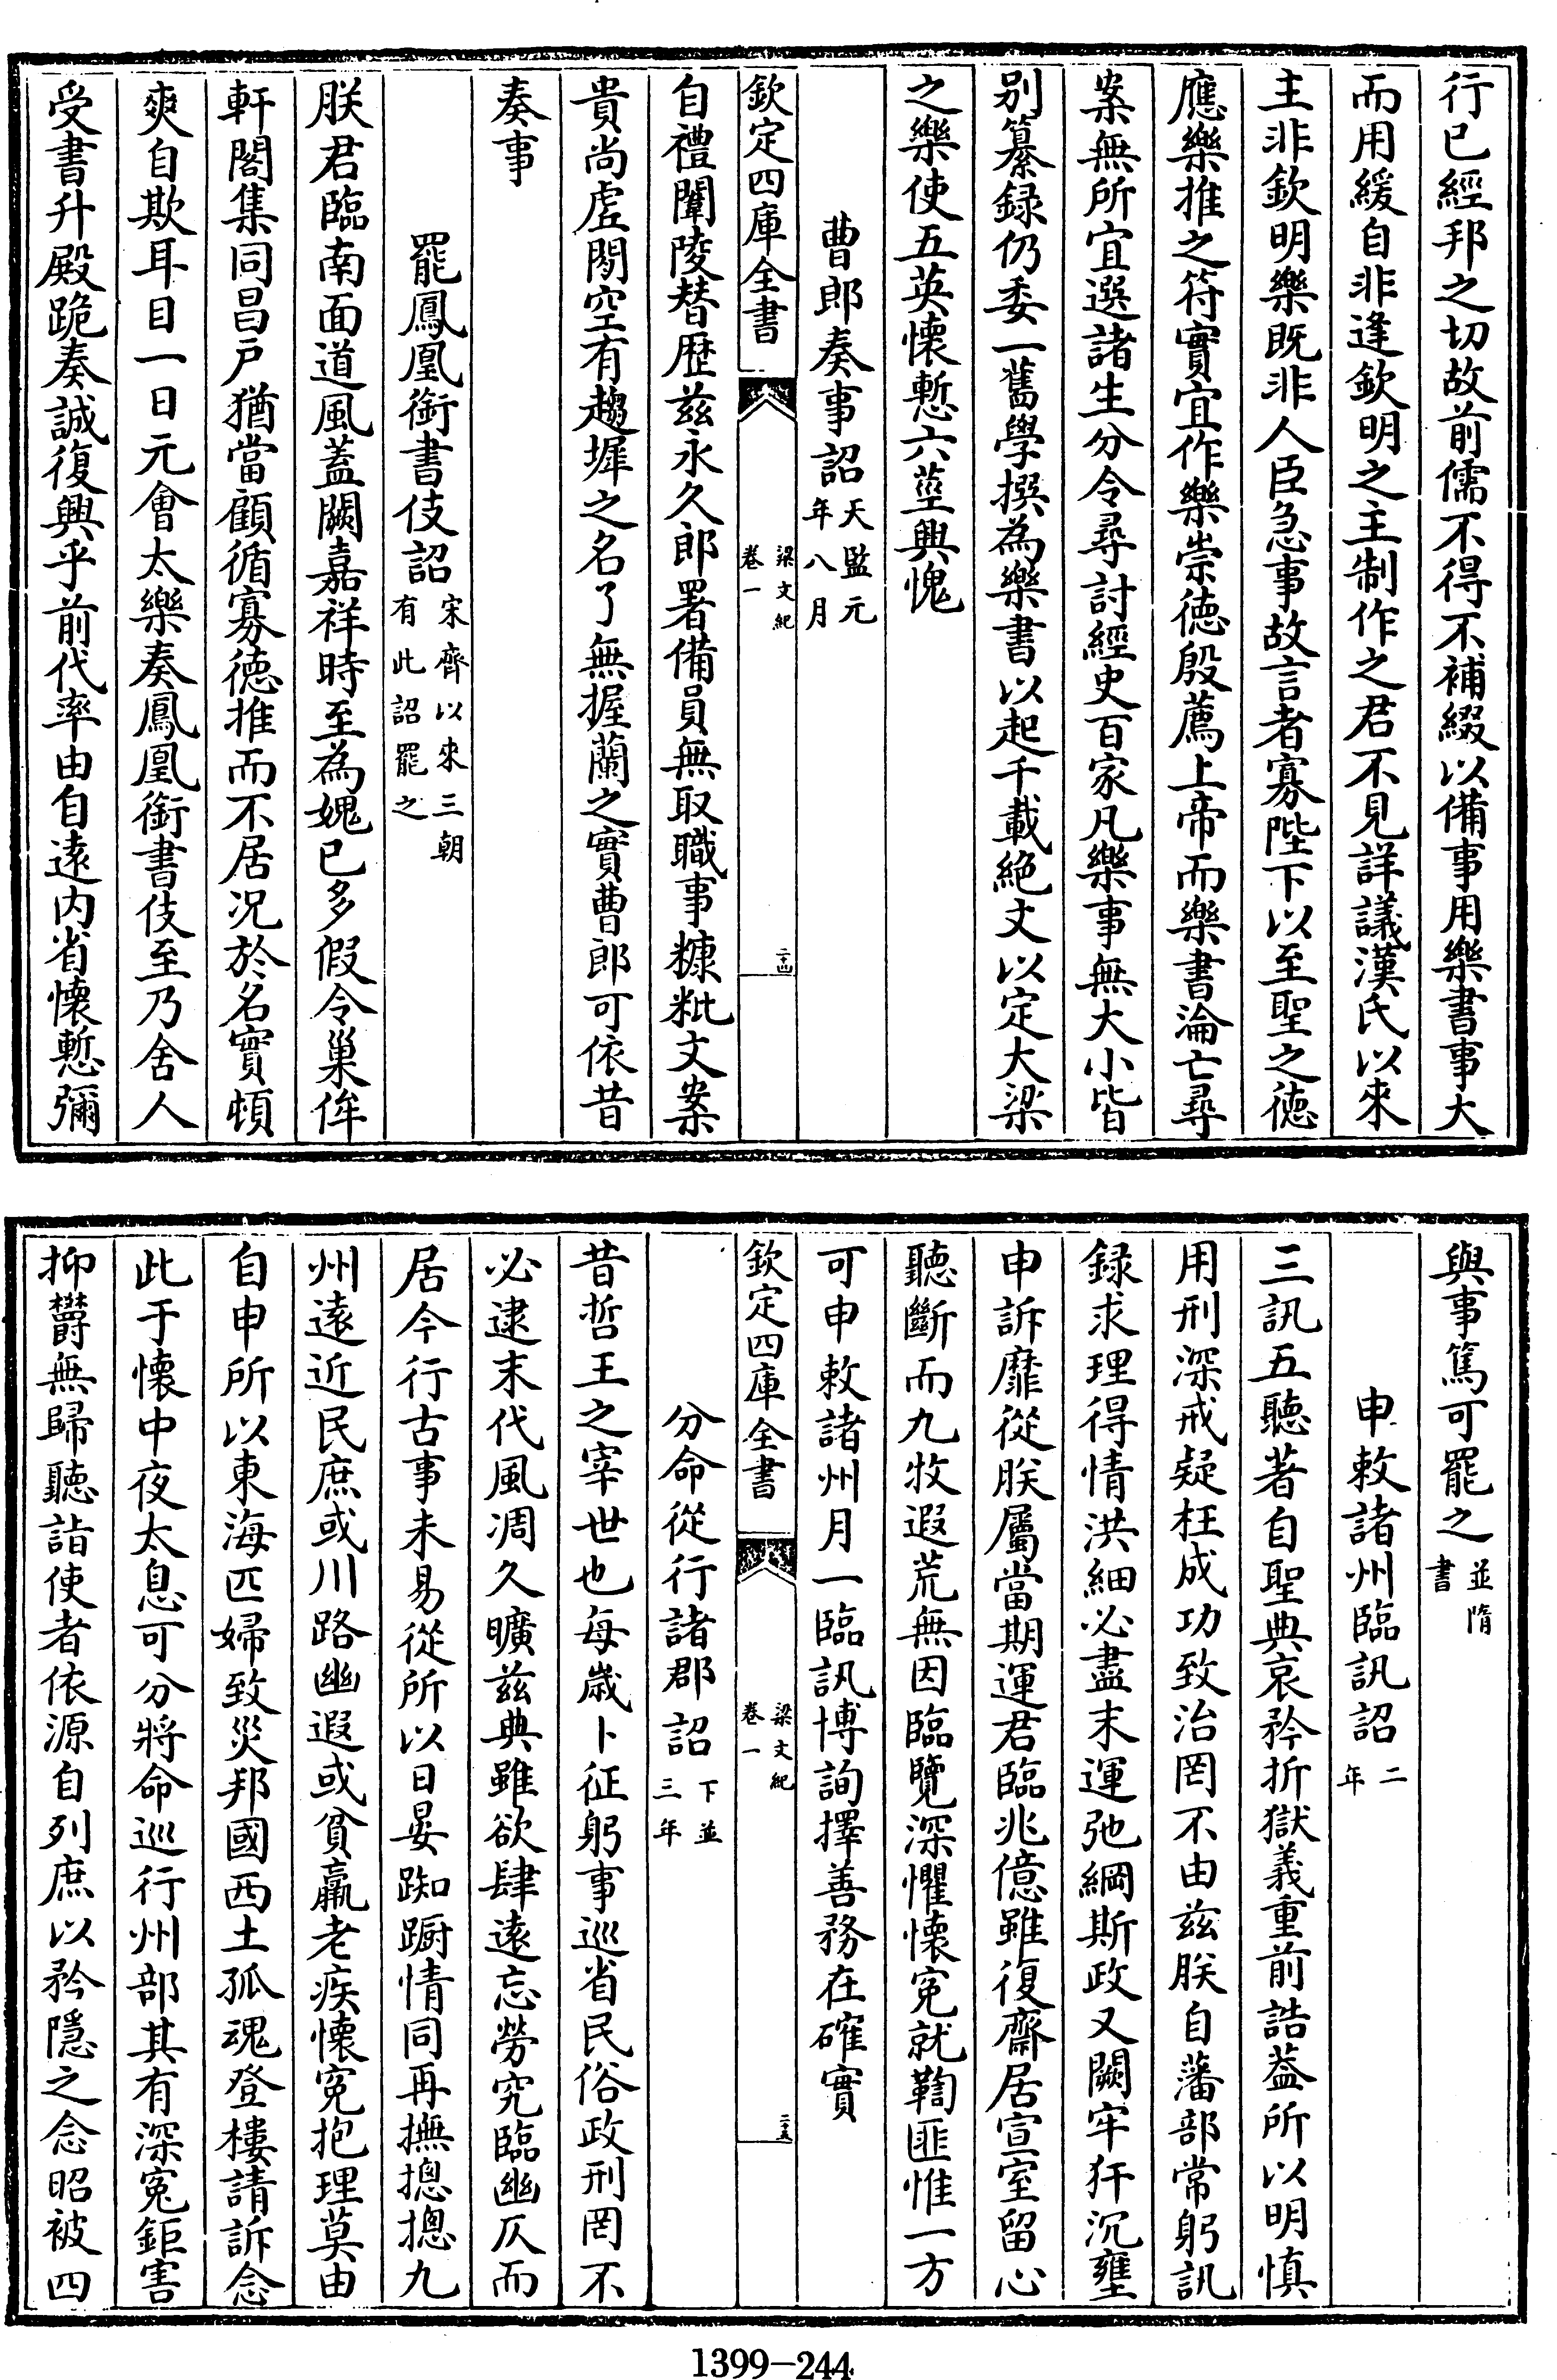 行已經邦之切故前儒不得不補綴以備事用樂書事大
而用緩自非逢欽明之主制作之君不見詳議漢氏以來
主非欽明樂既非人臣急事故言者寡陛下以至聖之德
應樂推之符實宜作樂崇德殷薦上帝而樂書淪亡尋
案無所宜選諸生分令尋討經史百家凡樂事無大小皆
别纂録仍委一舊學撰為樂書以起千載絶文以定大梁
之樂使五英懷慙六莖興愧
曹郎奏事詔天監元年八月
欽定四庫全書 梁文紀卷一 二十四
自禮闈陵替歴兹永久郎署備員無取職事糠粃文案
貴尚虚閑空有趨墀之名了無握蘭之實曹郎可依昔
奏事
罷鳳凰銜書伎詔宋齊以來三朝有此詔罷之
朕君臨南面道風蓋闕嘉祥時至為媿已多假令巢侔
軒閣集同昌户猶當顧循寡德推而不居况於名實頓
爽自欺耳目一日元會太樂奏鳳凰銜書伎至乃舍人
受書升殿跪奏誠復興乎前代率由自遠内省懷慙彌
與事篤可罷之並隋書
申敕諸州臨訊詔二年
三訊五聽著自聖典哀矜折獄義重前誥葢所以明慎
用刑深戒疑枉成功致治罔不由兹朕自藩部常躬訊
録求理得情洪細必盡末運弛綱斯政又闕牢犴沉壅
申訴靡從朕屬當期運君臨兆億雖復齋居宣室留心
聽斷而九牧遐荒無因臨覽深懼懷寃就鞫匪惟一方
可申敕諸州月一臨訊博詢擇善務在確實
欽定四庫全書 梁文紀卷一 二十五
分命從行諸郡詔下並三年
昔哲王之宰世也每歲卜征躬事巡省民俗政刑罔不
必逮末代風凋久曠兹典雖欲肆遠忘勞究臨幽仄而
居今行古事未易從所以日晏踟蹰情同再撫摠摠九
州遠近民庶或川路幽遐或貧羸老疾懷寃抱理莫由
自申所以東海匹婦致災邦國西土孤魂登樓請訴念
此于懷中夜太息可分將命巡行州部其有深寃鉅害
抑欝無歸聽詣使者依源自列庶以矜隱之念昭被四
1399-244